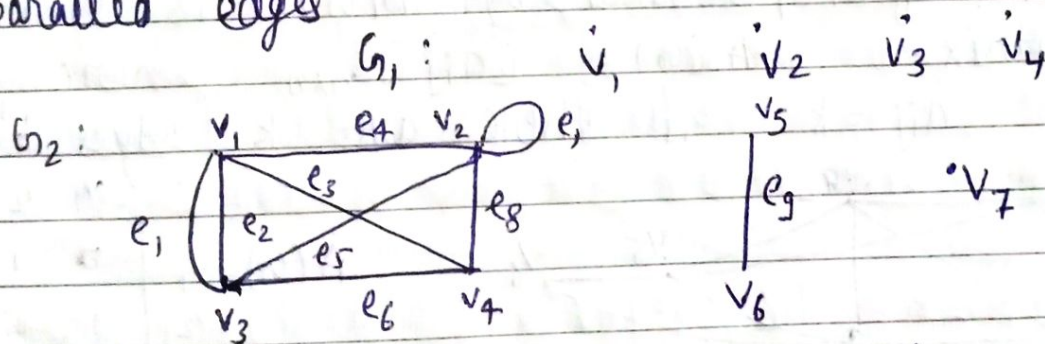 parallel edges
G₁ : V₁ V₂ V₃ V₄
G₂ : V₁ e₄ V₂ e₁ V₅
e₃ e₈ e₉ V₇
e₁ e₂ e₅
V₃ e₆ V₄ V₆